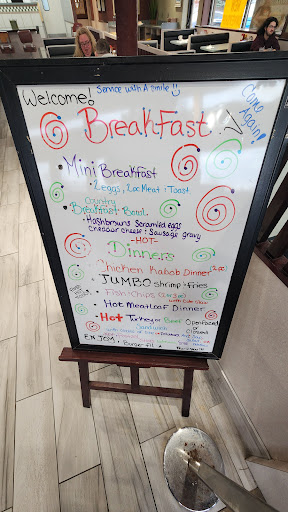 Service with A smile
Welcome!
Come Again!
BreakFast
Mini Breakfast
2 eggs, 2oz Meat & Toast
Country
Breakfast Bowl
Hashbrowns Scrambled eggs
Cheddar cheese & Sausage gravy
HOT
Dinners
Chicken Kabob Dinner
JUMBO Shrimp & Fries
Fish & Chips
with Cole Slaw
Hot Meatloaf Dinner
Hot Turkey or Beef Openfaced
or
Sandwich
ENJOY